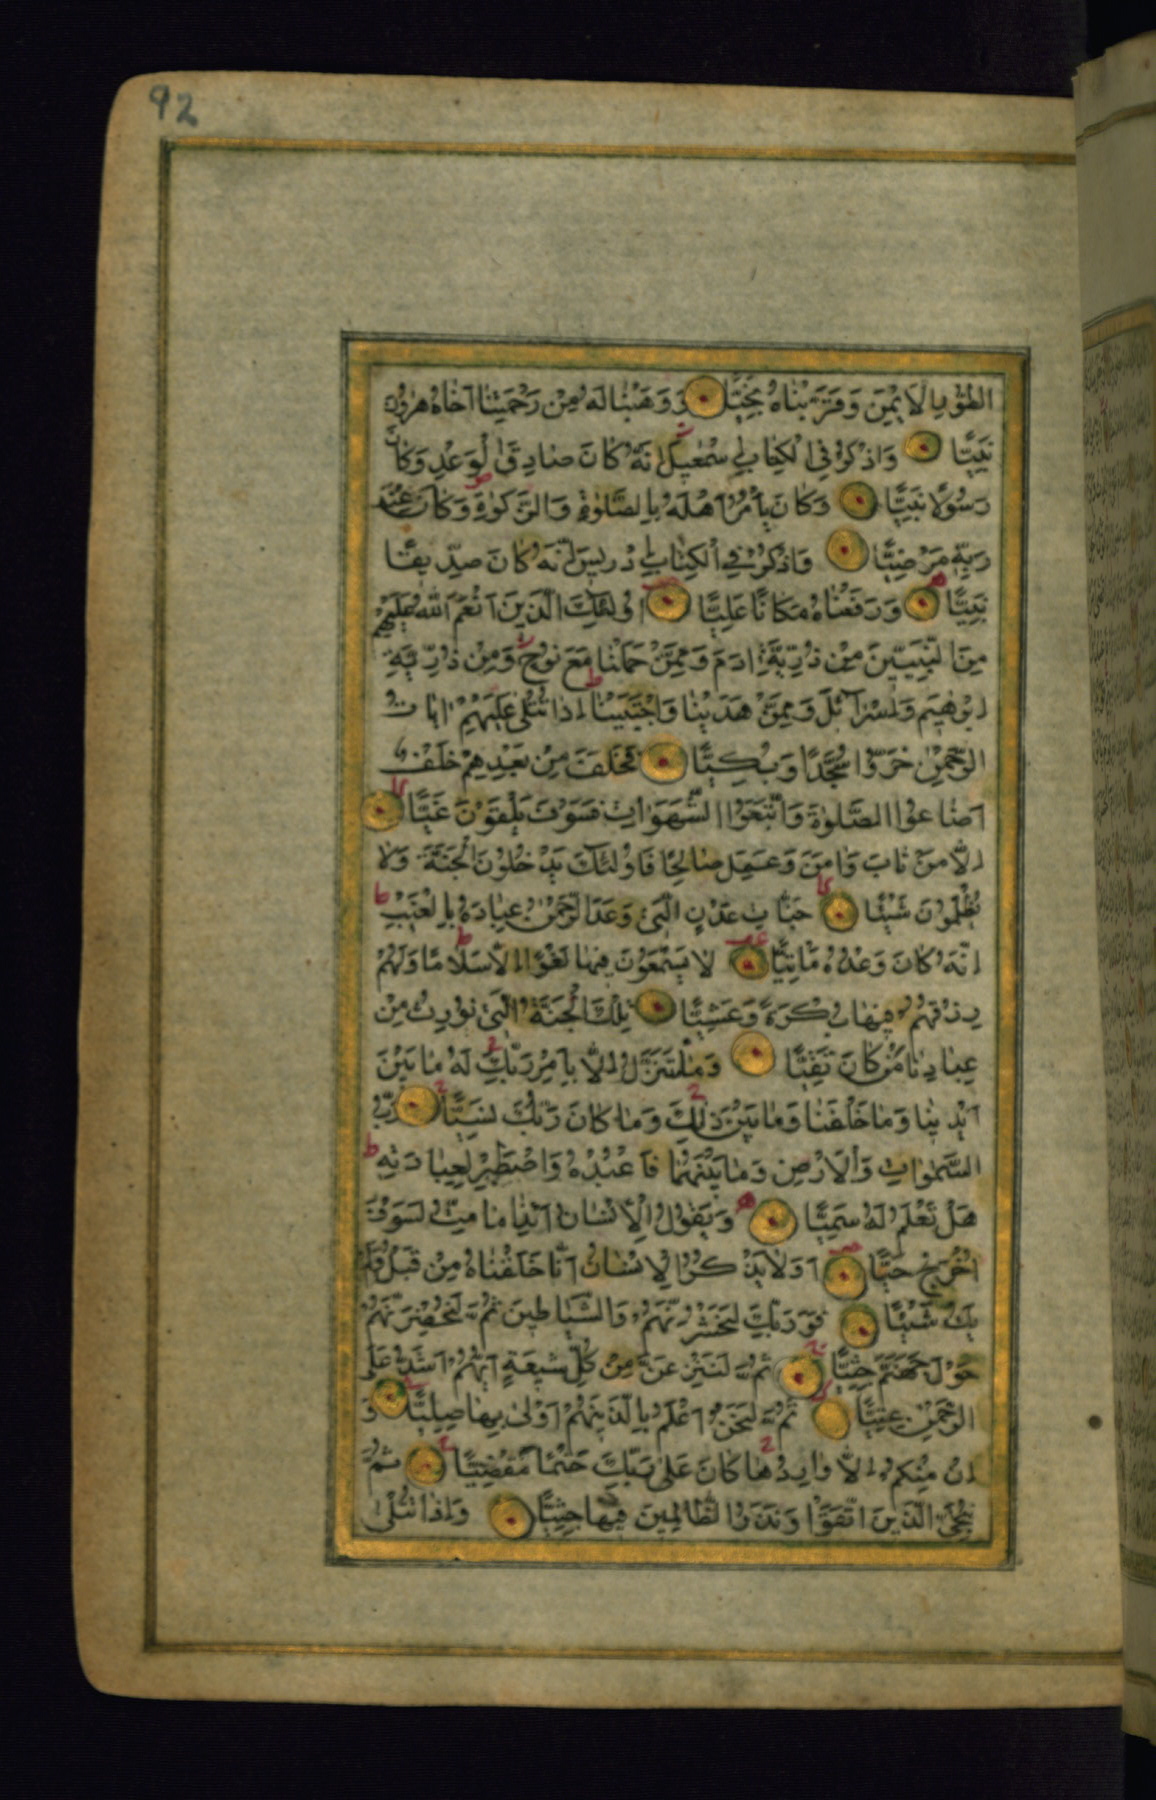 92
الطُّوْرِ الْاَيْمَنِ وَقَرَّبْنَاهُ نَجِيًّا وَوَهَبْنَا لَهُ مِنْ رَحْمَتِنَا اَخَاهُ هٰرُوْنَ
نَبِيًّا وَاذْكُرْ فِى الْكِتَابِ اِسْمٰعِيْلَ اِنَّهُ كَانَ صَادِقَ الْوَعْدِ وَكَانَ
رَسُوْلًا نَبِيًّا وَكَانَ يَاْمُرُ اَهْلَهُ بِالصَّلٰوةِ وَالزَّكٰوةِ وَكَانَ عِنْدَ
رَبِّهِ مَرْضِيًّا وَاذْكُرْ فِى الْكِتَابِ اِدْرِيسَ اِنَّهُ كَانَ صِدِّيقًا
نَبِيًّا وَرَفَعْنَاهُ مَكَانًا عَلِيًّا اُولٰئِكَ الَّذِينَ اَنْعَمَ اللّٰهُ عَلَيْهِمْ
مِنَ النَّبِيِّينَ مِنْ ذُرِّيَّةِ اٰدَمَ وَمِمَّنْ حَمَلْنَا مَعَ نُوحٍ وَمِنْ ذُرِّيَّةِ
اِبْرٰهِيمَ وَاِسْرَآئِلَ وَمِمَّنْ هَدَيْنَا وَاجْتَبَيْنَا اِذَا تُتْلٰى عَلَيْهِمْ اٰيَاتُ
الرَّحْمٰنِ خَرُّوا سُجَّدًا وَبُكِيًّا فَخَلَفَ مِنْ بَعْدِهِمْ خَلْفٌ
اَضَاعُوا الصَّلٰوةَ وَاتَّبَعُوا الشَّهَوَاتِ فَسَوْفَ يَلْقَوْنَ غَيًّا
اِلَّا مَنْ تَابَ وَاٰمَنَ وَعَمِلَ صَالِحًا فَاُولٰئِكَ يَدْخُلُونَ الْجَنَّةَ وَلَا
يُظْلَمُونَ شَيْئًا جَنَّاتِ عَدْنٍ الَّتِى وَعَدَ الرَّحْمٰنُ عِبَادَهُ بِالْغَيْبِ
اِنَّهُ كَانَ وَعْدُهُ مَاْتِيًّا لَا يَسْمَعُونَ فِيهَا لَغْوًا اِلَّا سَلَامًا وَلَهُمْ
رِزْقُهُمْ فِيهَا بُكْرَةً وَعَشِيًّا تِلْكَ الْجَنَّةُ الَّتِى نُورِثُ مِنْ
عِبَادِنَا مَنْ كَانَ تَقِيًّا وَمَا نَتَنَزَّلُ اِلَّا بِاَمْرِ رَبِّكَ لَهُ مَا بَيْنَ
اَيْدِينَا وَمَا خَلْفَنَا وَمَا بَيْنَ ذٰلِكَ وَمَا كَانَ رَبُّكَ نَسِيًّا رَبُّ
السَّمٰوَاتِ وَالْاَرْضِ وَمَا بَيْنَهُمَا فَاعْبُدْهُ وَاصْطَبِرْ لِعِبَادَتِهِ
هَلْ تَعْلَمُ لَهُ سَمِيًّا وَيَقُولُ الْاِنْسَانُ اَئِذَا مَا مِتُّ لَسَوْفَ
اُخْرَجُ حَيًّا اَوَلَا يَذْكُرُ الْاِنْسَانُ اَنَّا خَلَقْنَاهُ مِنْ قَبْلُ وَلَمْ
يَكُ شَيْئًا فَوَرَبِّكَ لَنَحْشُرَنَّهُمْ وَالشَّيَاطِينَ ثُمَّ لَنُحْضِرَنَّهُمْ
حَوْلَ جَهَنَّمَ جِثِيًّا ثُمَّ لَنَنْزِعَنَّ مِنْ كُلِّ شِيعَةٍ اَيُّهُمْ اَشَدُّ عَلَى
الرَّحْمٰنِ عِتِيًّا ثُمَّ لَنَحْنُ اَعْلَمُ بِالَّذِينَ هُمْ اَوْلٰى بِهَا صِلِيًّا وَ
اِنْ مِنْكُمْ اِلَّا وَارِدُهَا كَانَ عَلٰى رَبِّكَ حَتْمًا مَقْضِيًّا ثُمَّ
نُنَجِّى الَّذِينَ اتَّقَوْا وَنَذَرُ الظَّالِمِينَ فِيهَا جِثِيًّا وَاِذَا تُتْلٰى